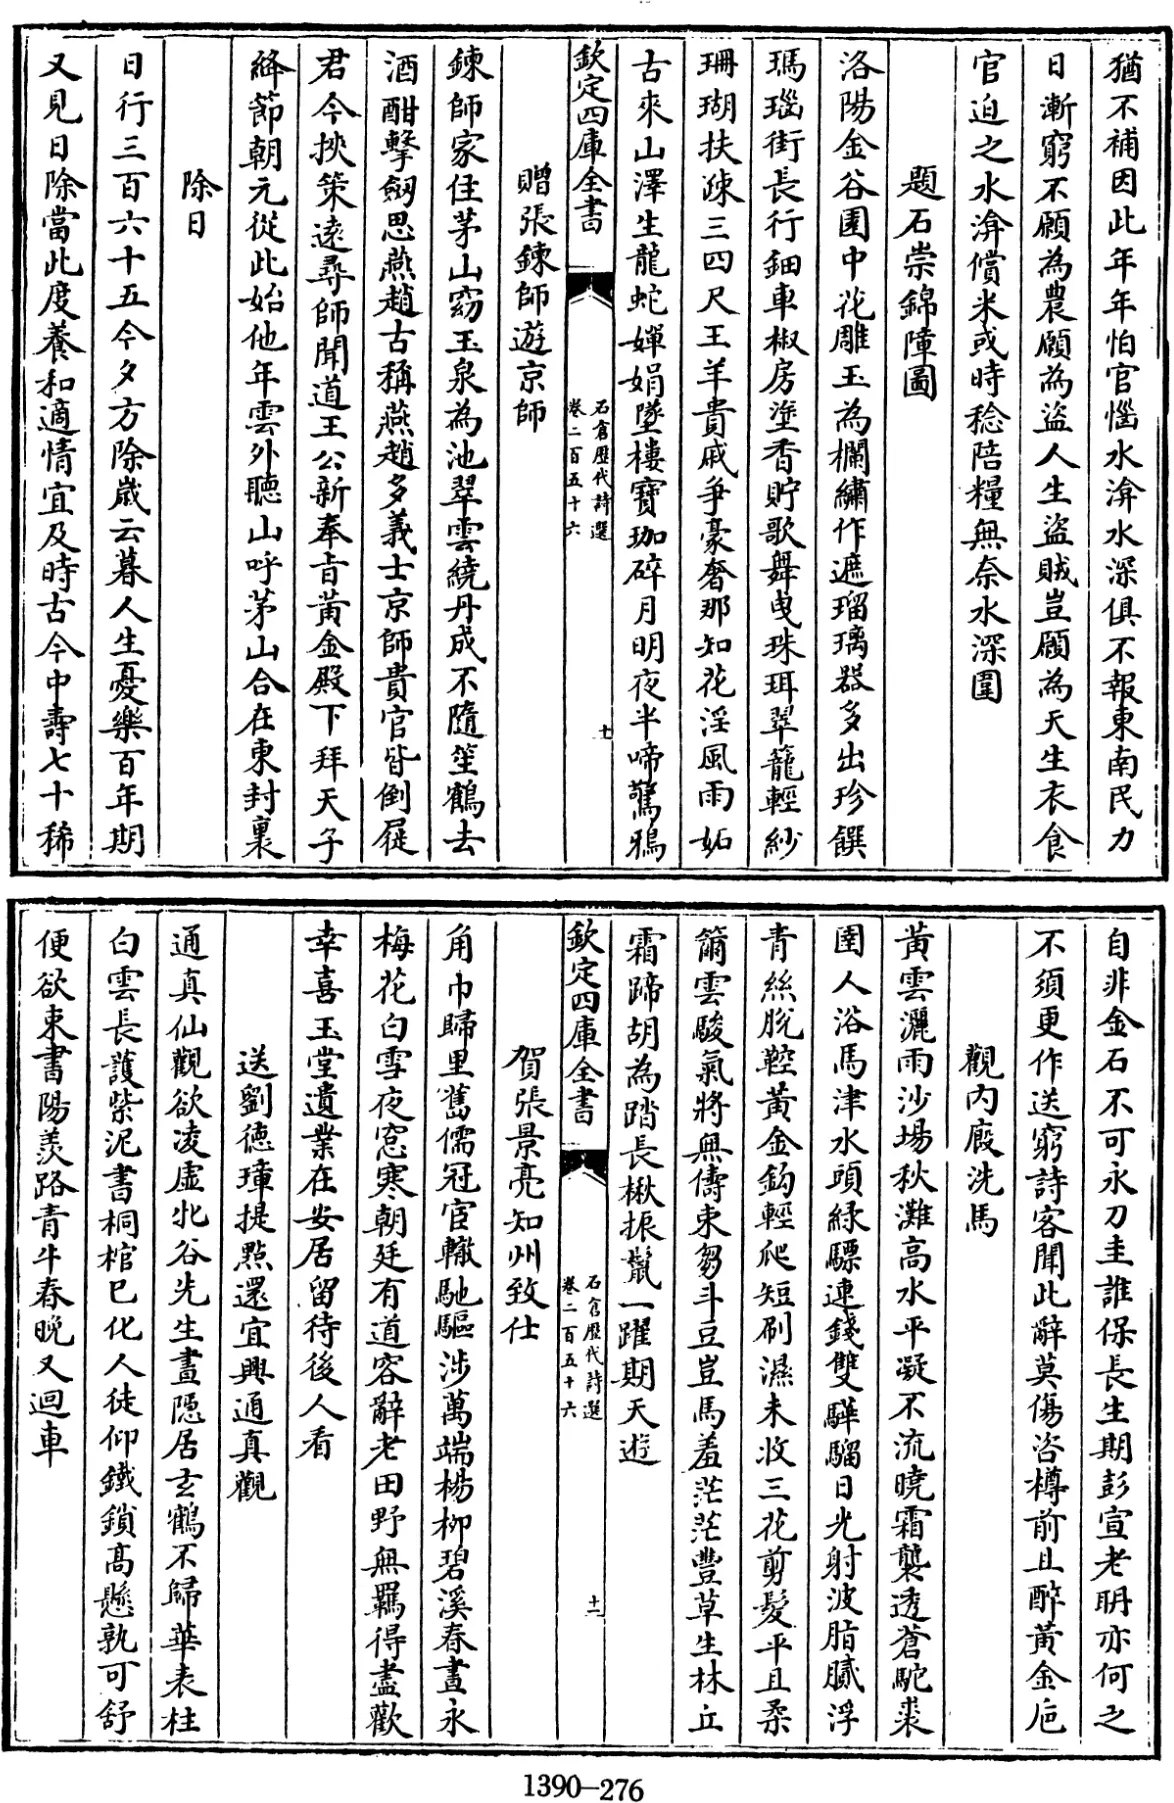 猶不補因此年年怕官惱水渰水深俱不報東南民力
日漸窮不願為農願為盜人生盜賊豈願為天生衣食
官迫之水渰償米或時稔陪糧無奈水深圍
題石崇錦障圖
洛陽金谷園中花雕玉為欄繡作遮瑠璃器多出珍饌
瑪瑙街長行鈿車椒房塗香貯歌舞曳珠珥翠籠輕紗
珊瑚扶疎三四尺王羊貴戚爭豪奢那知花淫風雨妬
古來山澤生龍蛇嬋娟墜樓寶珈碎月明夜半啼驚鴉
欽定四庫全書
石倉歷代詩選
卷二百五十六
十
贈張鍊師遊京師
鍊師家住茅山窈玉泉為池翠雲繞丹成不隨笙鶴去
酒酣擊劒思燕趙古稱燕趙多義士京師貴官皆倒屣
君今挾策遠尋師聞道王公新奉旨黃金殿下拜天子
絳節朝元從此始他年雲外聽山呼茅山合在東封裏
除日
日行三百六十五今夕方除歲云暮人生憂樂百年期
又見日除當此度養和適情宜及時古今中壽七十稀
自非金石不可永刀圭誰保長生期彭宣老聃亦何之
不須更作送窮詩客聞此辭莫傷咨樽前且醉黃金巵
觀內廄洗馬
黃雲灑雨沙場秋灘高水平凝不流曉霜襲透蒼駝裘
圉人浴馬津水頭綠驃連錢雙驊騮日光射波脂膩浮
青絲脫鞚黃金鈎輕爬短刷濕未收三花剪髮平且柔
籋雲駿氣將無儔束芻斗豆豈馬羞茫茫豐草生林丘
霜蹄胡為踏長楸振鬛一躍期天遊
欽定四庫全書
石倉歷代詩選
卷二百五十六
十一
賀張景亮知州致仕
角巾歸里舊儒冠宦轍馳驅涉萬端楊柳碧溪春晝永
梅花白雪夜窓寒朝廷有道容辭老田野無羈得盡歡
幸喜玉堂遺業在安居留待後人看
送劉德璋提點還宜興通真觀
通真仙觀欲凌虛北谷先生晝隱居玄鶴不歸華表柱
白雲長護紫泥書桐棺已化人徒仰鐵鎖高懸孰可舒
便欲束書陽羨路青牛春晚又迴車
1390—276